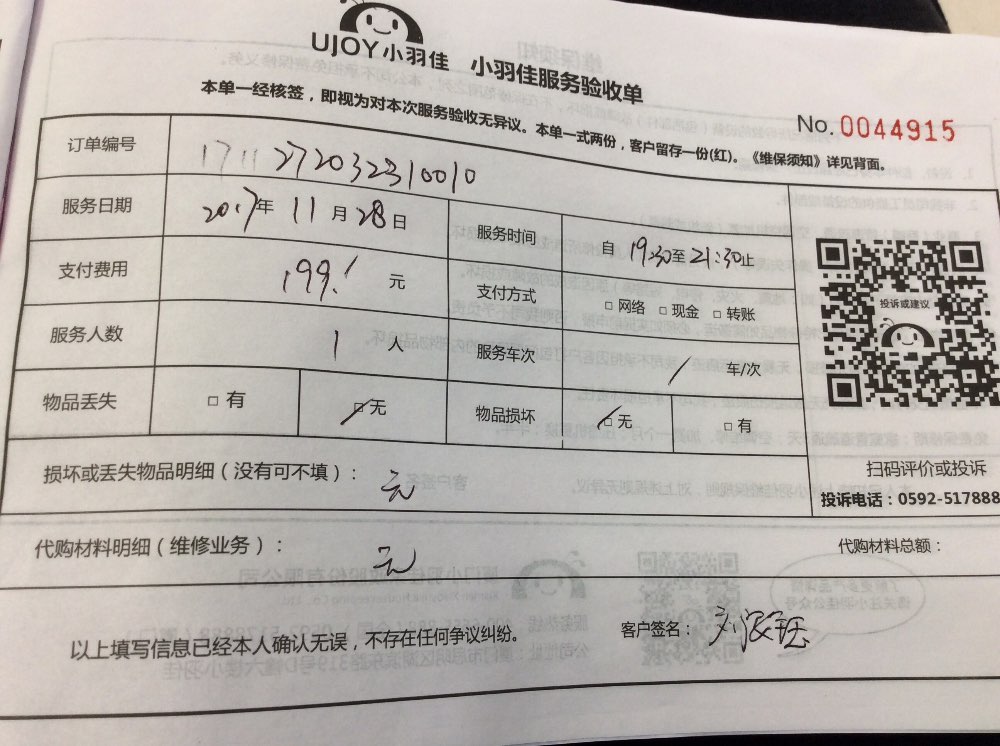 UJOY小羽佳 小羽佳服务验收单
本单一经核签，即视为对本次服务验收无异议。本单一式两份，客户留存一份(红)。《维保须知》详见背面。
No. 0044915
订单编号 1711272032310010
服务日期 2017年 11月28日 服务时间 自 19:30至 21:30止
支付费用 199.! 元 支付方式 □ 网络 □ 现金 □ 转账
服务人数 1 人 服务车次 / 车/次
物品丢失 □ 有 □ 无 物品损坏 □ 无 □ 有
投诉或建议
扫码评价或投诉
投诉电话：0592-517888
损坏或丢失物品明细（没有可不填）： 无
代购材料明细（维修业务）： 无 代购材料总额：
以上填写信息已经本人确认无误，不存在任何争议纠纷。 客户签名：